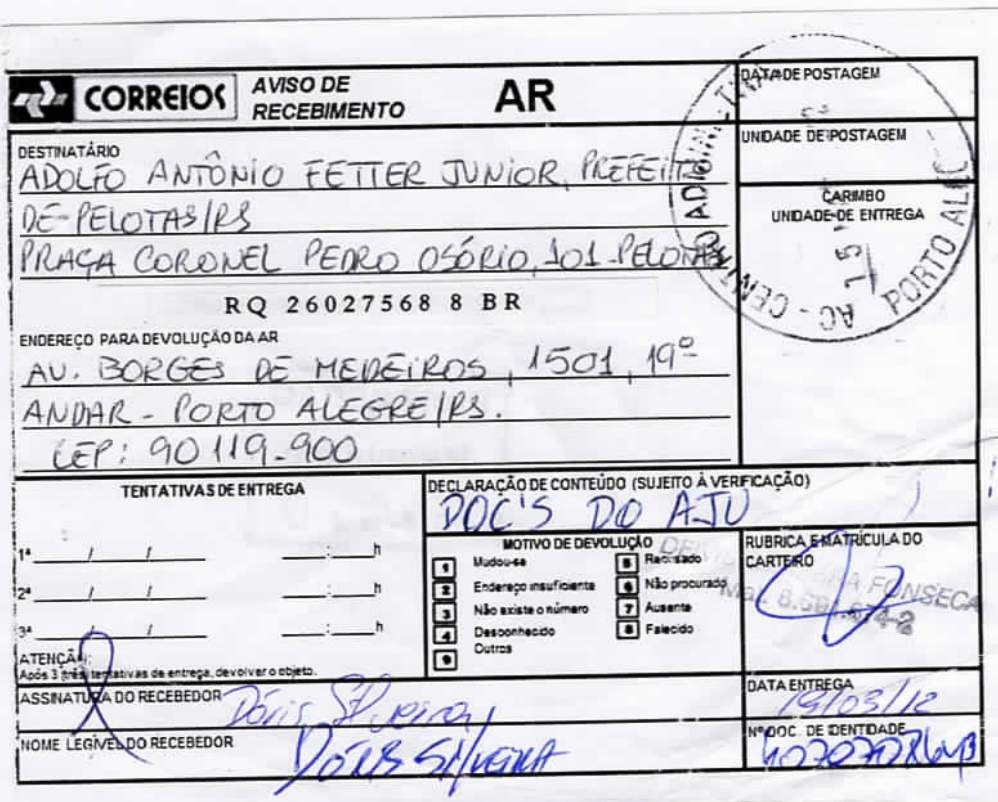 CORREIOS
AVISO DE
RECEBIMENTO
AR
DATA DE POSTAGEM
UNIDADE DE POSTAGEM
CARIMBO
UNIDADE DE ENTREGA
DESTINATÁRIO
ADOLFO ANTÔNIO FETTER JUNIOR, PREFEITO
DE PELOTAS/RS
PRAÇA CORONEL PEDRO OSÓRIO, 101 - PELOTAS
RQ 26027568 8 BR
ENDEREÇO PARA DEVOLUÇÃO DA AR
AV. BORGES DE MEDEIROS, 1501, 19º
ANDAR - PORTO ALEGRE/RS.
CEP: 90119-900
AC - CENTRO
15
PORTO ALEG
TENTATIVAS DE ENTREGA
1ª / / : h
2ª / / : h
3ª / / : h
ATENÇÃO:
Após 3 (três) tentativas de entrega, devolver o objeto.
DECLARAÇÃO DE CONTEÚDO (SUJEITO À VERIFICAÇÃO)
DOC'S DO AJU
MOTIVO DE DEVOLUÇÃO
1 Mudou-se
2 Endereço insuficiente
3 Não existe o número
4 Desconhecido
9 Outros
5 Recusado
6 Não procurado
7 Ausente
8 Falecido
RUBRICA E MATRÍCULA DO
CARTEIRO
FONSECA
ASSINATURA DO RECEBEDOR
Dóris Silveira
DATA ENTREGA
/03/12
NOME LEGÍVEL DO RECEBEDOR
DÓRIS SILVEIRA
Nº DOC. DE IDENTIDADE